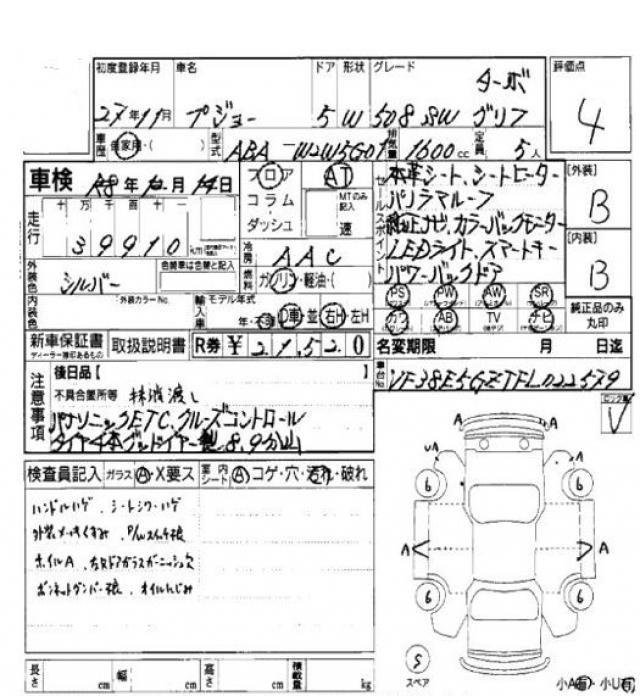 初度登録年月 車名 ドア 形状 グレード 評価点
ターボ
27年11月 プジョー 5 W 508 SW グリフ
4
車歴 自家用・( ) 型式 ABA-W2W5G01 排気量 1600cc 定員 5人
車検 R8年12月14日
フロア AT
コラム MTのみ記入
ダッシュ 速
セールスポイント
本革シート、シートヒーター
パノラマルーフ
純正ナビ、カラーバックモニター
LEDライト、スマートキー
パワーバックドア
[外装]
B
[内装]
B
走行 十 万 千 百 十 一
39910
冷房 AAC
外装色 シルバー 色替車は色替と記入
燃料 ガソリン・軽油・( )
PS PW AW SR
カワ AB TV ナビ
純正品のみ丸印
内装色 外装カラーNo. 輸入車 モデル年式
年・不明 D車 並 右H 左H
新車保証書 ディーラー捺印あるもの 取扱説明書 R券 ¥ 21520
名変期限 月 日迄
注意事項
後日品【 】
不具合箇所等
パナソニックETC、クルーズコントロール
タイヤ4本グッドイヤー製 8、9分山
車台No. VF38E5GZTFL022579
検査員記入 ガラス A・X要ス 室内シート A コゲ・穴・汚れ・破れ
ハンドルハゲ、シートシワ・ハゲ
外装メッキくすみ、P/Wスイッチ
ホイルA、
ボンネットダンパー、オイルにじみ
A A
A
6 6
A A
6 6
S
スペア
長さ cm 幅 cm 高さ cm 積載量 kg
小A有・小U有